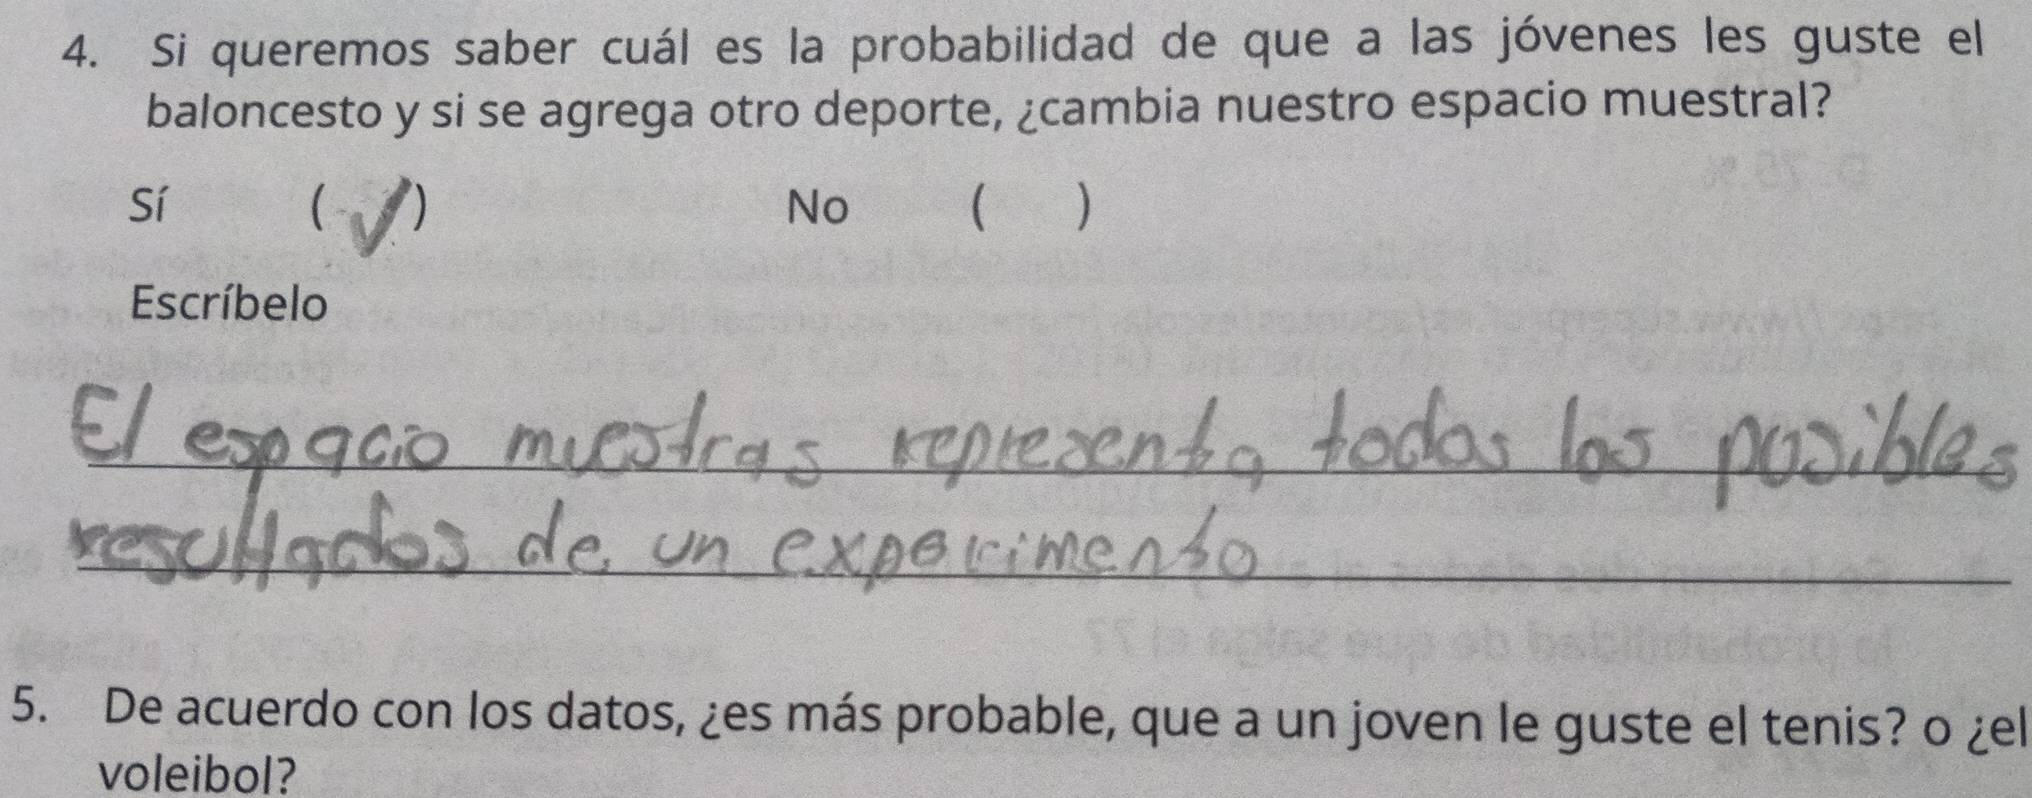 4. Si queremos saber cuál es la probabilidad de que a las jóvenes les guste el
baloncesto y si se agrega otro deporte, ¿cambia nuestro espacio muestral?
Sí (✓) No ( )
Escríbelo
El espacio muestras representa todos los posibles
resultados de un experimento
5. De acuerdo con los datos, ¿es más probable, que a un joven le guste el tenis? o ¿el
voleibol?